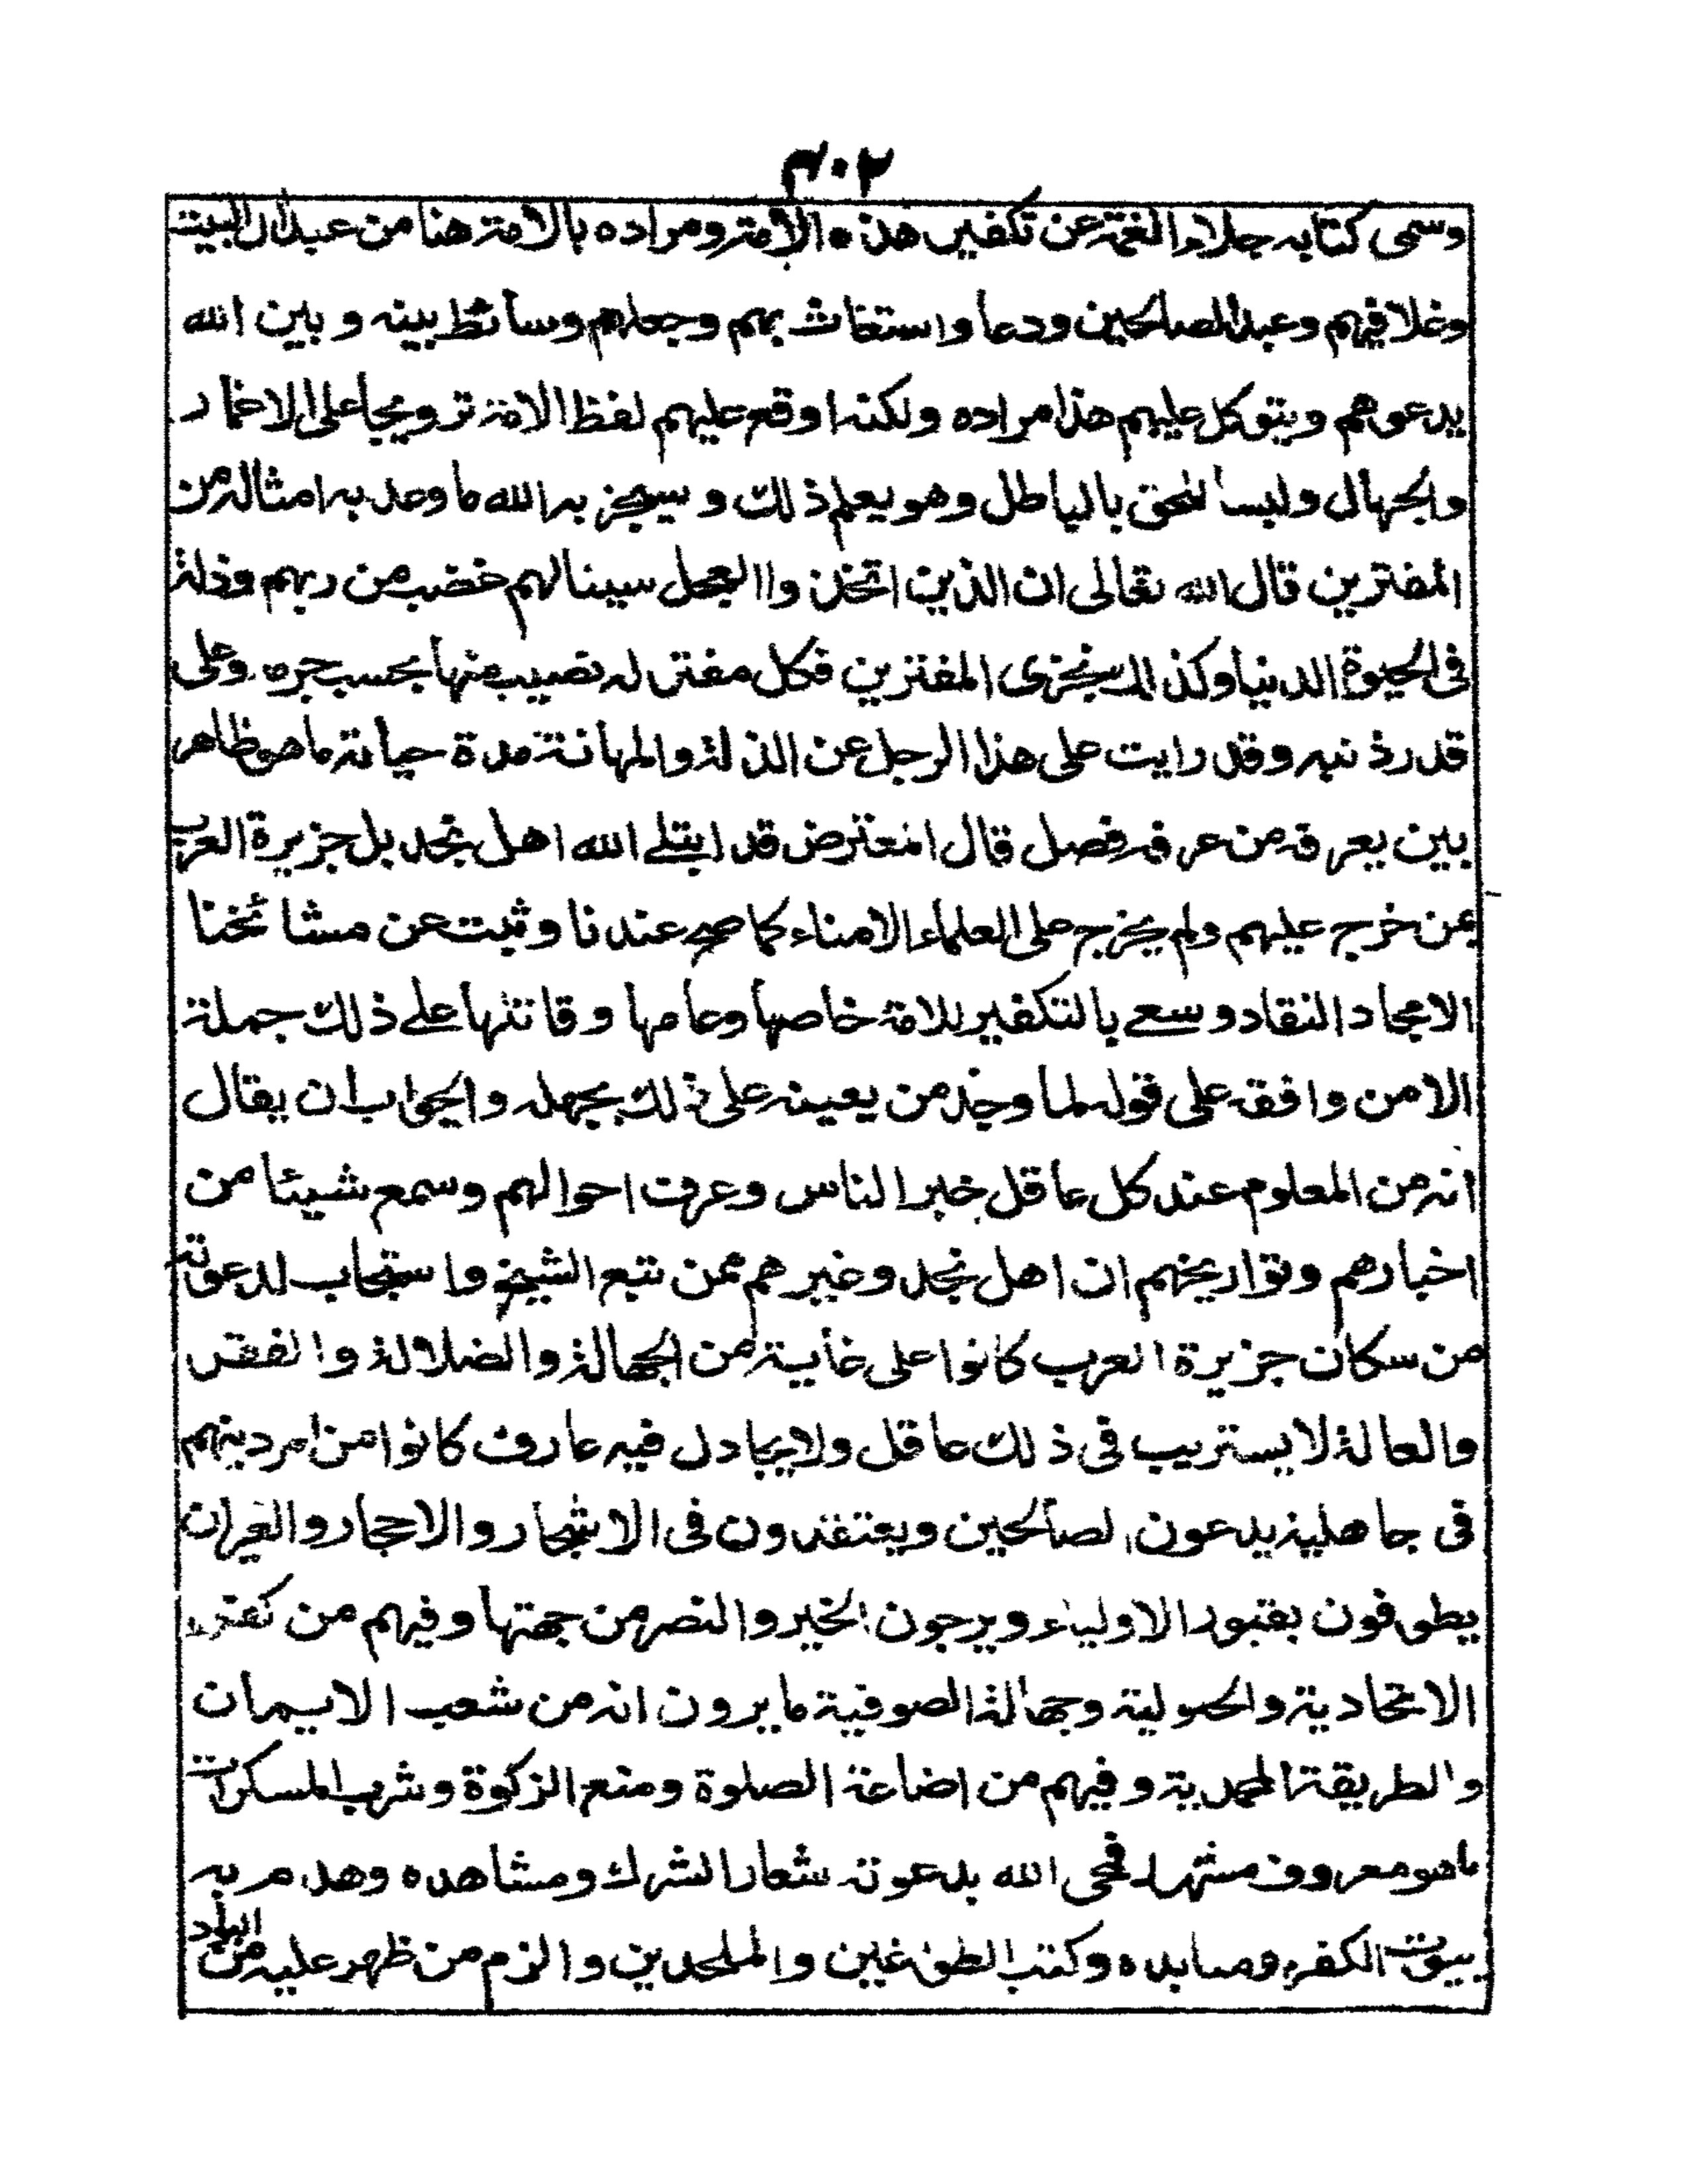 ٣٠٢
وسمى كتابه جلاء الغمة عن تكفير هذه الأمة ومراده بالامة هنا من عبد ال البيت
وغلا فيهم وعبد الصالحين ودعا واستغاث بهم وجعلهم وسائط بينه وبين الله
يدعوهم ويتوكل عليهم هذا مراده ولكنه اوقع عليهم لفظ الامة ترويجا على الاغمار
والجهال ولبسا للحق بالباطل وهو يعلم ذلك وسيجز به الله ما وعد به امثاله من
المفترين قال الله تعالى ان الذين اتخذوا العجل سينالهم غضب من ربهم وذلة
فى الحيوة الدنيا وكذلك نجزى المفترين فكل مفتر له نصيب منها بحسب جرمه وعلى
قدر ذنبه وقد رايت على هذا الرجل عن الذلة والمهانة مدة حياته ما هو ظاهر
بين يعرفه من عرفه فصل قال المعترض قد ابتلے الله اهل نجد بل جزيرة العرب
بمن خرج عليهم ولم يخرج على العلماء الامناء كما صح عندنا وثبت عن مشائخنا
الامجاد النقاد وسعے بالتكفير للامة خاصها وعامها وقاتلها علے ذلك جملة
الا من وافقه على قوله لما وجد من يعينه على ذلك بجهله والجواب ان يقال
انه من المعلوم عند كل عاقل خبر الناس وعرف احوالهم وسمع شيئا من
اخبارهم وتواريخهم ان اهل نجد وغيرهم ممن تبع الشيخ واستجاب لدعوته
من سكان جزيرة العرب كانوا على غاية من الجهالة والضلالة والفقر
والعالة لا يستريب فى ذلك عاقل ولا يجادل فيه عارف كانوا من امر دينهم
فى جاهلية يدعون الصالحين ويعتقدون فى الاشجار والاحجار والغيران
يطوفون بقبور الاولياء ويرجون الخير والنصر من جهتها وفيهم من كفر
الاتحادية والحلولية وجهالة الصوفية ما يرون انه من شعب الايمان
والطريقة المحمدية وفيهم من اضاعة الصلوة ومنع الزكوة وشرب المسكرات
ما هو معروف مشهور فمحى الله بدعوته شعار الشرك ومشاهده وهدم به
بيوت الكفر ومعابده وكتب الطواغين والملحدين والزم من ظهر عليه من
البواد